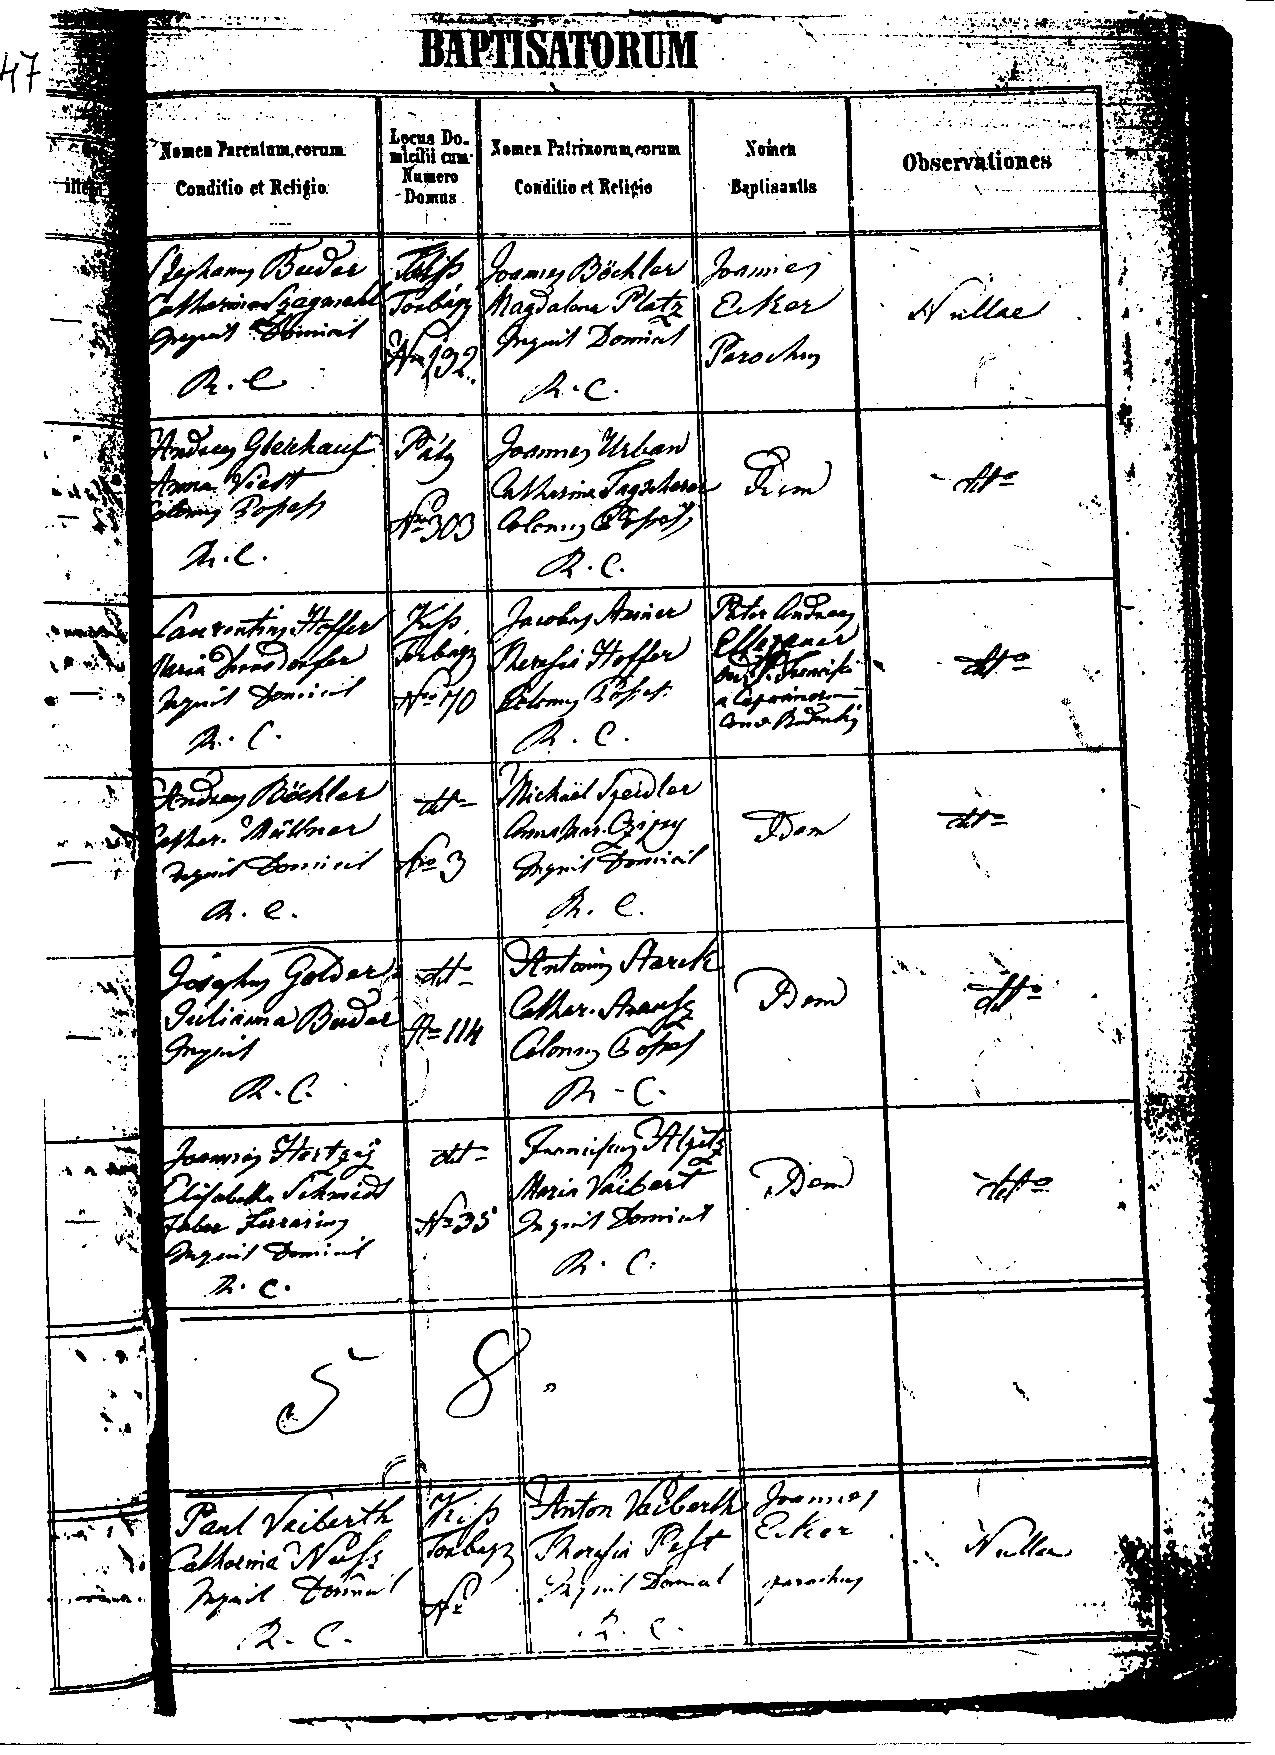 47
BAPTISATORUM
Nomen Parentum, eorum
Conditio et Religio
Locus Do-
micilii cum
Numero
Domus
Nomen Patrinorum, eorum
Conditio et Religio
Nomen
Baptisantis
Observationes
Stephanus Buder
Catharina
Inquil Domicil
R. C.
Torbágy
Nro 192
Joannes Böchler
Magdalena Platz
Inquil Domicil
R. C.
Joannes
Ecker
Parochus
Nullae
Andreas
Anna Viest
Colonus Posses
R. C.
Páty
Nro 303
Joannes Urban
Catharina
Colonus Posses
R. C.
Idem
dtto
Laurentius Hoffer
Maria
Inquil Domicil
R. C.
Kiss
Torbagy
Nro 70
Jacobus
Theresia Hoffer
Colonus Posses
R. C.
Pater Andreas
Ord. S. Francisci
a Capistrano
Conv Budensis
dtto
Andreas Böchler
Cathar. Müllner
Inquil Domicil
R. C.
dtt
Nro 3
Michael Speidler
Anna Mar.
Inquil Domicil
R. C.
Idem
dtto
Josephus Golder
Juliana Buder
Inquil
R. C.
dtt
No 114
Antonius Starck
Cathar.
Colonus Posses
R. C.
Idem
dtto
Joannes Hertzog
Elisabetha Schmidt
Faber Ferrarius
Inquil Domicil
R. C.
dtt
No 35
Franciscus
Maria Vaibert
Inquil Domicil
R. C.
Idem
dtto
5 8.
Paul Vaiberth
Catharina
Inquil Domicil
R. C.
Kiss
Torbagy
No
Anton Vaiberth
Theresia
Inquil Domicil
R. C.
Joannes
Ecker
parochus
Nullae